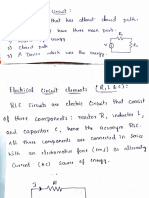 Circuit :
that has atleast closed path.
have three main part.
of energy
closed path
A Device which uses the energy.
R
V
Electrical Circuit elements (R, L & C)
RLC Circuits are electric Circuits that consist
of three components : resistor R, inductor L,
and capacitor C, hence the Acronym RLC.
All three components are connected in series
with an electromotive force (emf) as alternating
Current (AC) source of energy.
I R